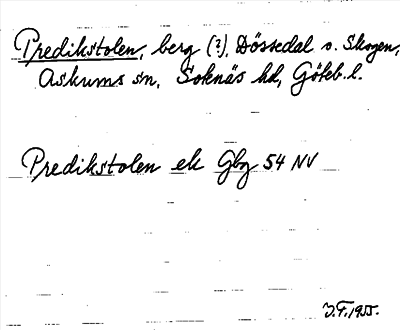 Predikstolen, berg (?), Dössedal o. Skogen,
Askums sn, Sotenäs hd, Göteb. l.
Predikstolen ek Gbg 54 NV
J.F. 1955.